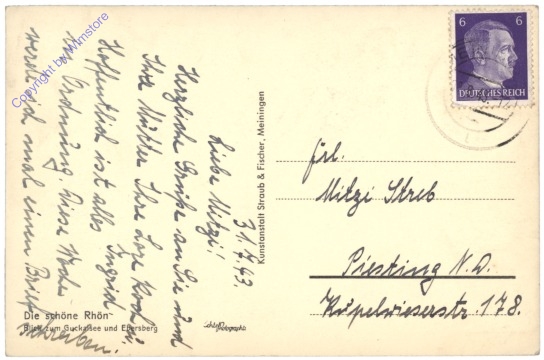 31.7.43.
Liebe Mitzi!
Herzliche Grüße an Sie und
Ihre Mutter Ihre
Ingrid
Hoffentlich ist alles
in Ordnung. Diese Woche
werde ich mal einen Brief
schreiben.
Die schöne Rhön
Blick zum Guckaisee und Ebersberg
Kunstanstalt Straub & Fischer, Meiningen
6 6
DEUTSCHES REICH
Frl.
Mitzi Streb
Piesting N.D.
Kupelwieserstr. 178.
Copyright by Wimstore